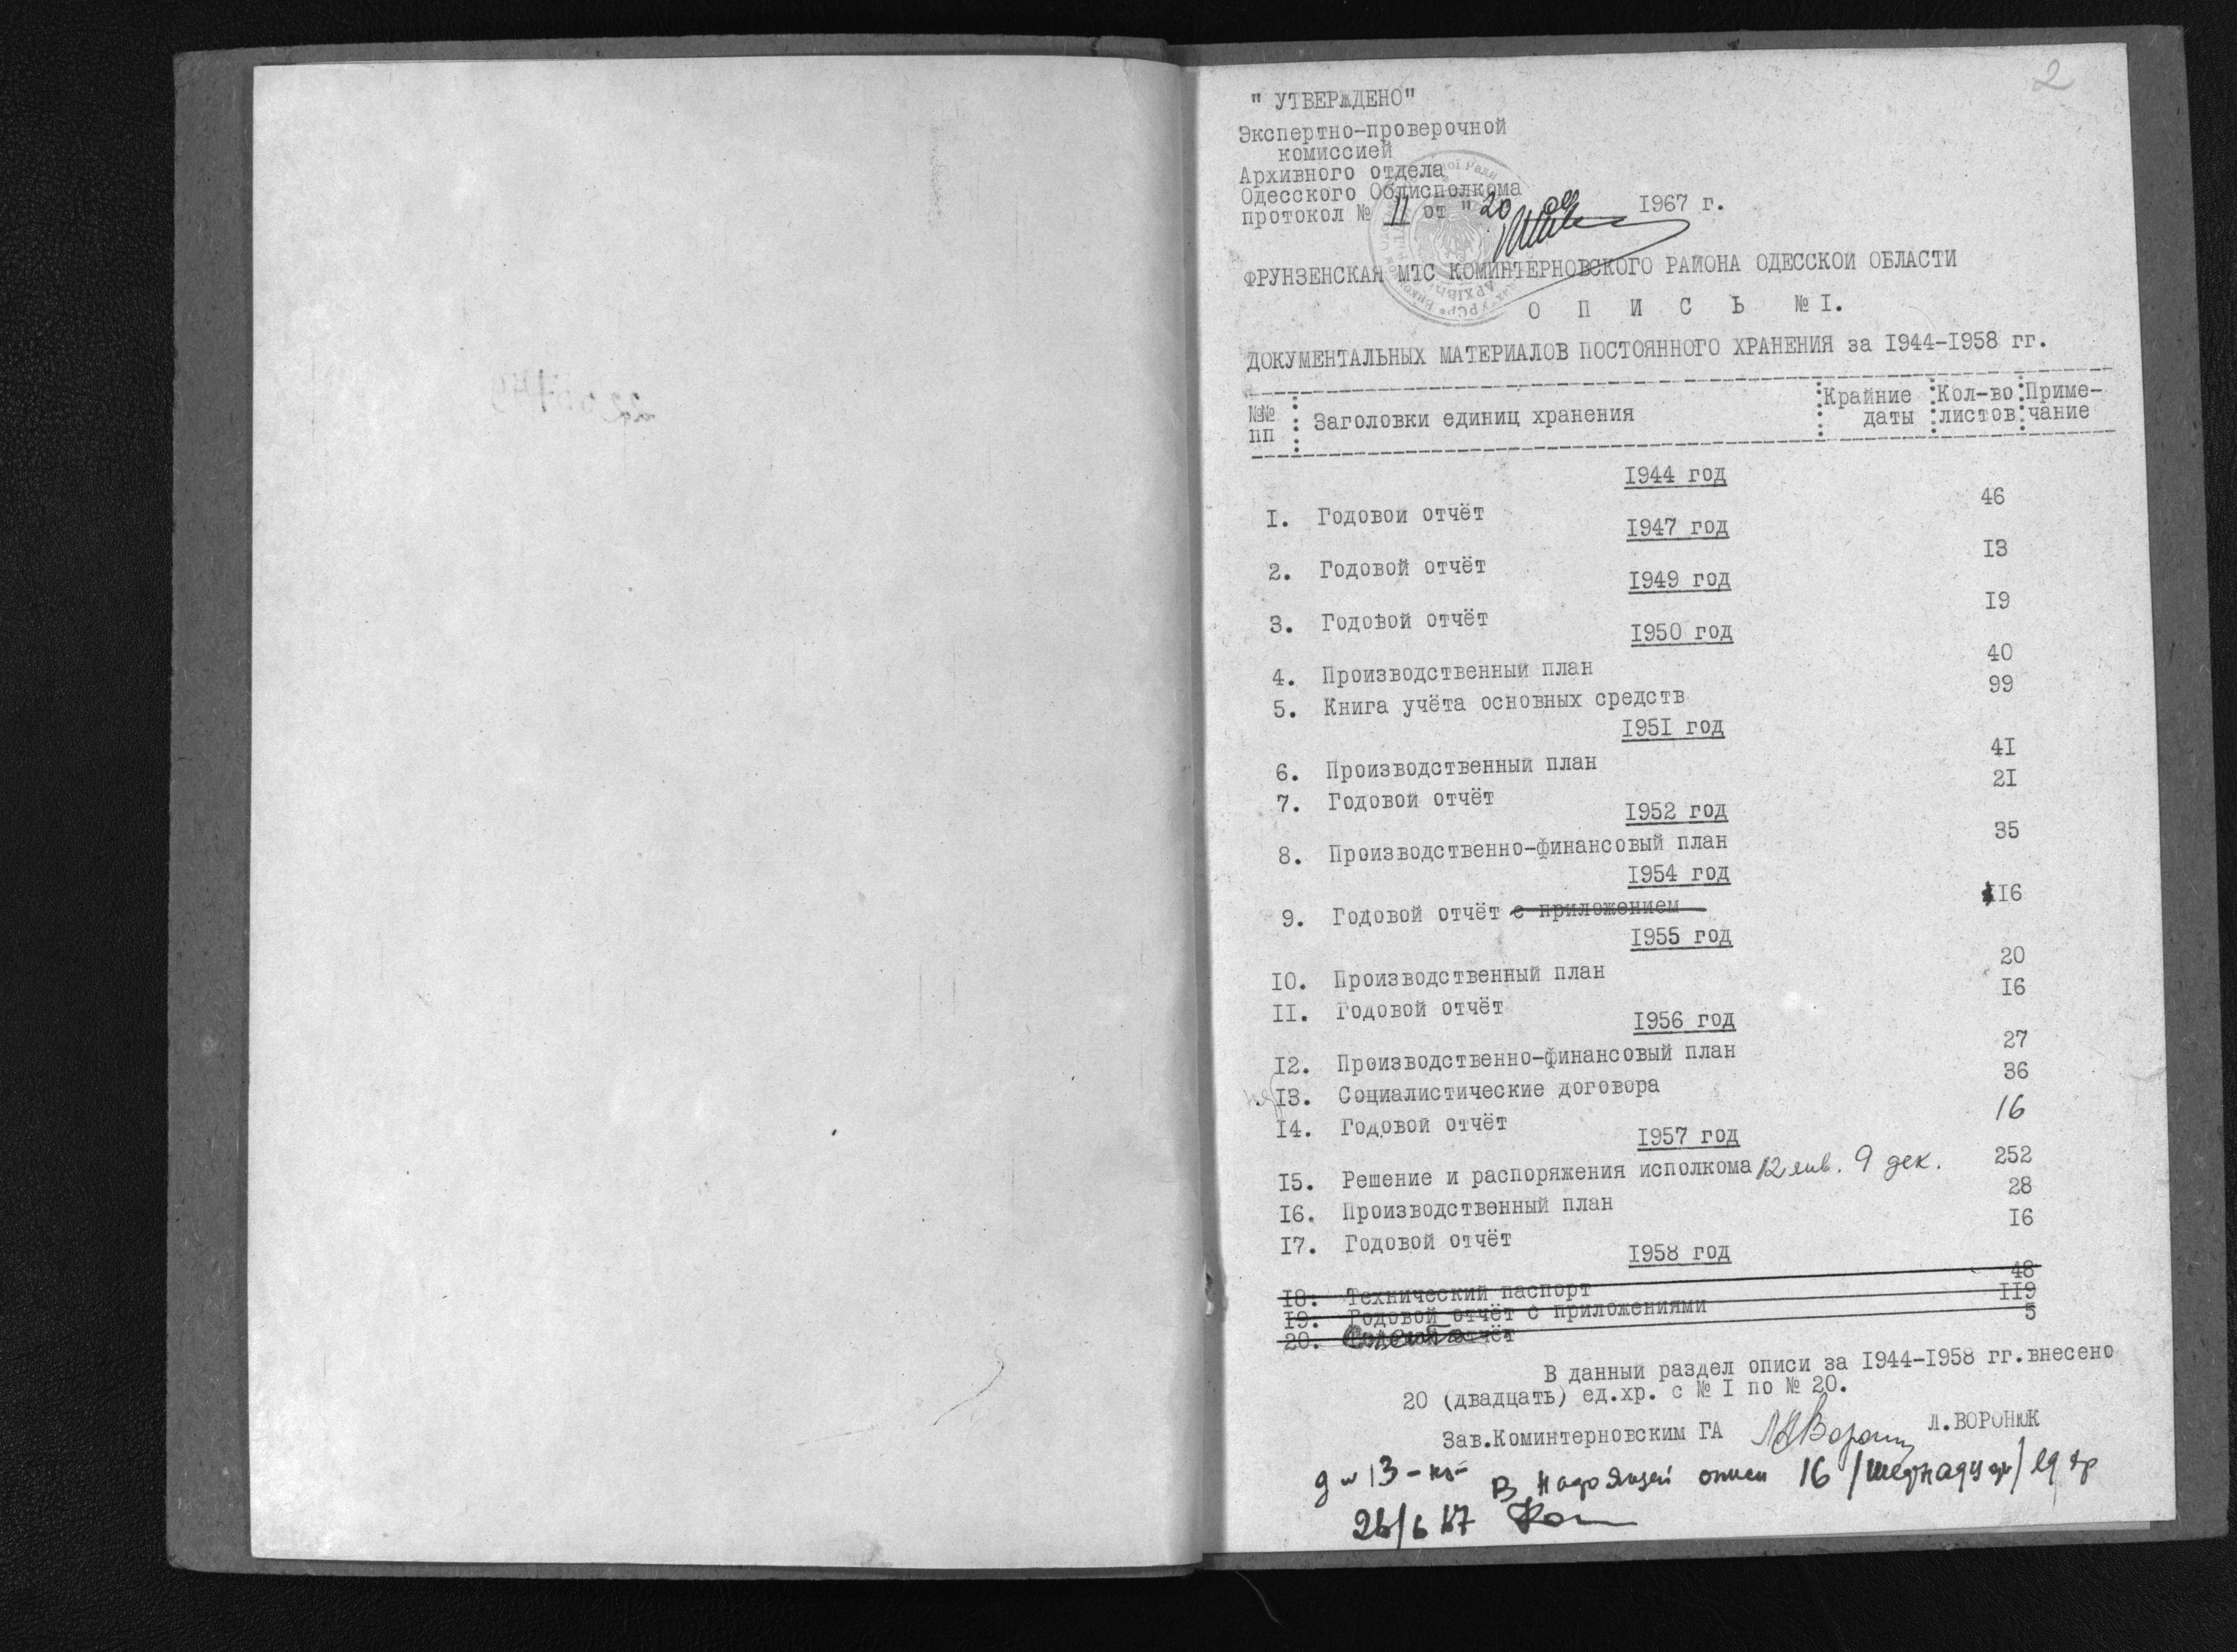 2
" УТВЕРЖДЕНО"
Экспертно-проверочной
комиссией
Архивного отдела
Одесского Облисполкома
протокол № 11 от "20 1967 г.
ФРУНЗЕНСКАЯ МТС КОМИНТЕРНОВСКОГО РАЙОНА ОДЕССКОЙ ОБЛАСТИ
О П И С Ь № I.
ДОКУМЕНТАЛЬНЫХ МАТЕРИАЛОВ ПОСТОЯННОГО ХРАНЕНИЯ за I944-I958 гг.
№№ пп : Заголовки единиц хранения : Крайние даты : Кол-во листов : Приме-чание
I944 год
I. Годовой отчёт 46
I947 год
2. Годовой отчёт I3
I949 год
3. Годовой отчёт I9
I950 год
4. Производственный план 40
5. Книга учёта основных средств 99
I95I год
6. Производственный план 4I
7. Годовой отчёт 2I
I952 год
8. Производственно-финансовый план 35
I954 год
9. Годовой отчёт с приложением II6
I955 год
I0. Производственный план 20
II. Годовой отчёт I6
I956 год
I2. Производственно-финансовый план 27
I3. Социалистические договора 36
I4. Годовой отчёт 16
I957 год
I5. Решение и распоряжения исполкома 12 янв. 9 дек. 252
I6. Производственный план 28
I7. Годовой отчёт I6
I958 год
I8. Технический паспорт 48
I9. Годовой отчёт с приложениями II9
20. отчёт 5
В данный раздел описи за I944-I958 гг. внесено
20 (двадцать) ед.хр. с № I по № 20.
Зав.Коминтерновским ГА Л.ВОРОНЮК
В настоящей описи 16 /шестнадцать/ ед хр